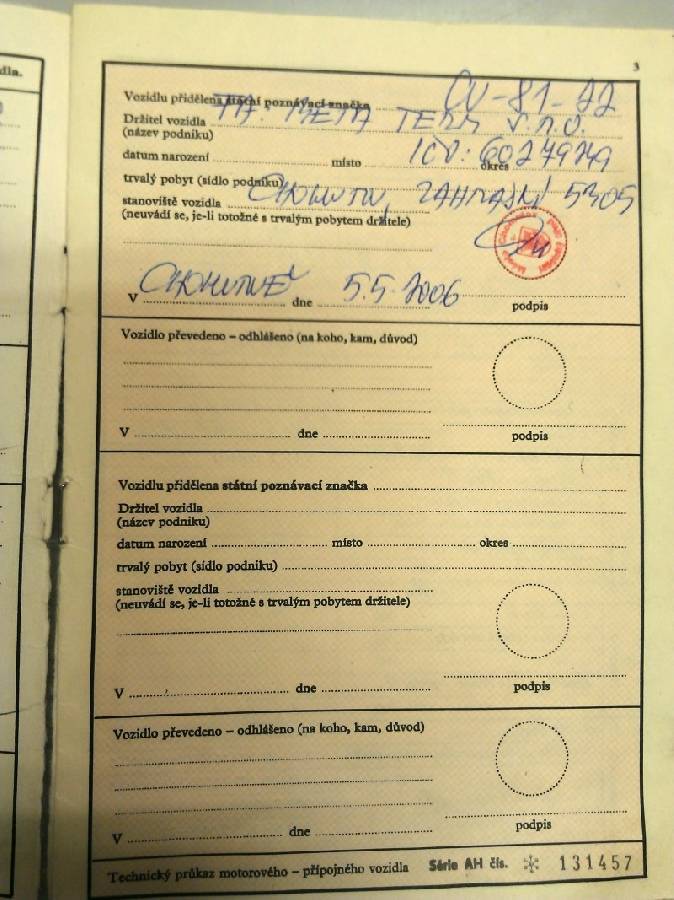 dla.
3
Vozidlu přidělena státní poznávací značka CV-81-22
Držitel vozidla FA. BETA TERM S.R.O.
(název podniku)
datum narození místo IČO: okres
trvalý pobyt (sídlo podniku) CHOMUTOV, 5305
stanoviště vozidla
(neuvádí se, je-li totožné s trvalým pobytem držitele)
V CHOMUTOVĚ dne 5.5.2006
podpis
Vozidlo převedeno – odhlášeno (na koho, kam, důvod)
V dne
podpis
Vozidlu přidělena státní poznávací značka
Držitel vozidla
(název podniku)
datum narození místo okres
trvalý pobyt (sídlo podniku)
stanoviště vozidla
(neuvádí se, je-li totožné s trvalým pobytem držitele)
V dne
podpis
Vozidlo převedeno – odhlášeno (na koho, kam, důvod)
V dne
podpis
Technický průkaz motorového – přípojného vozidla Série AH čís. 131457